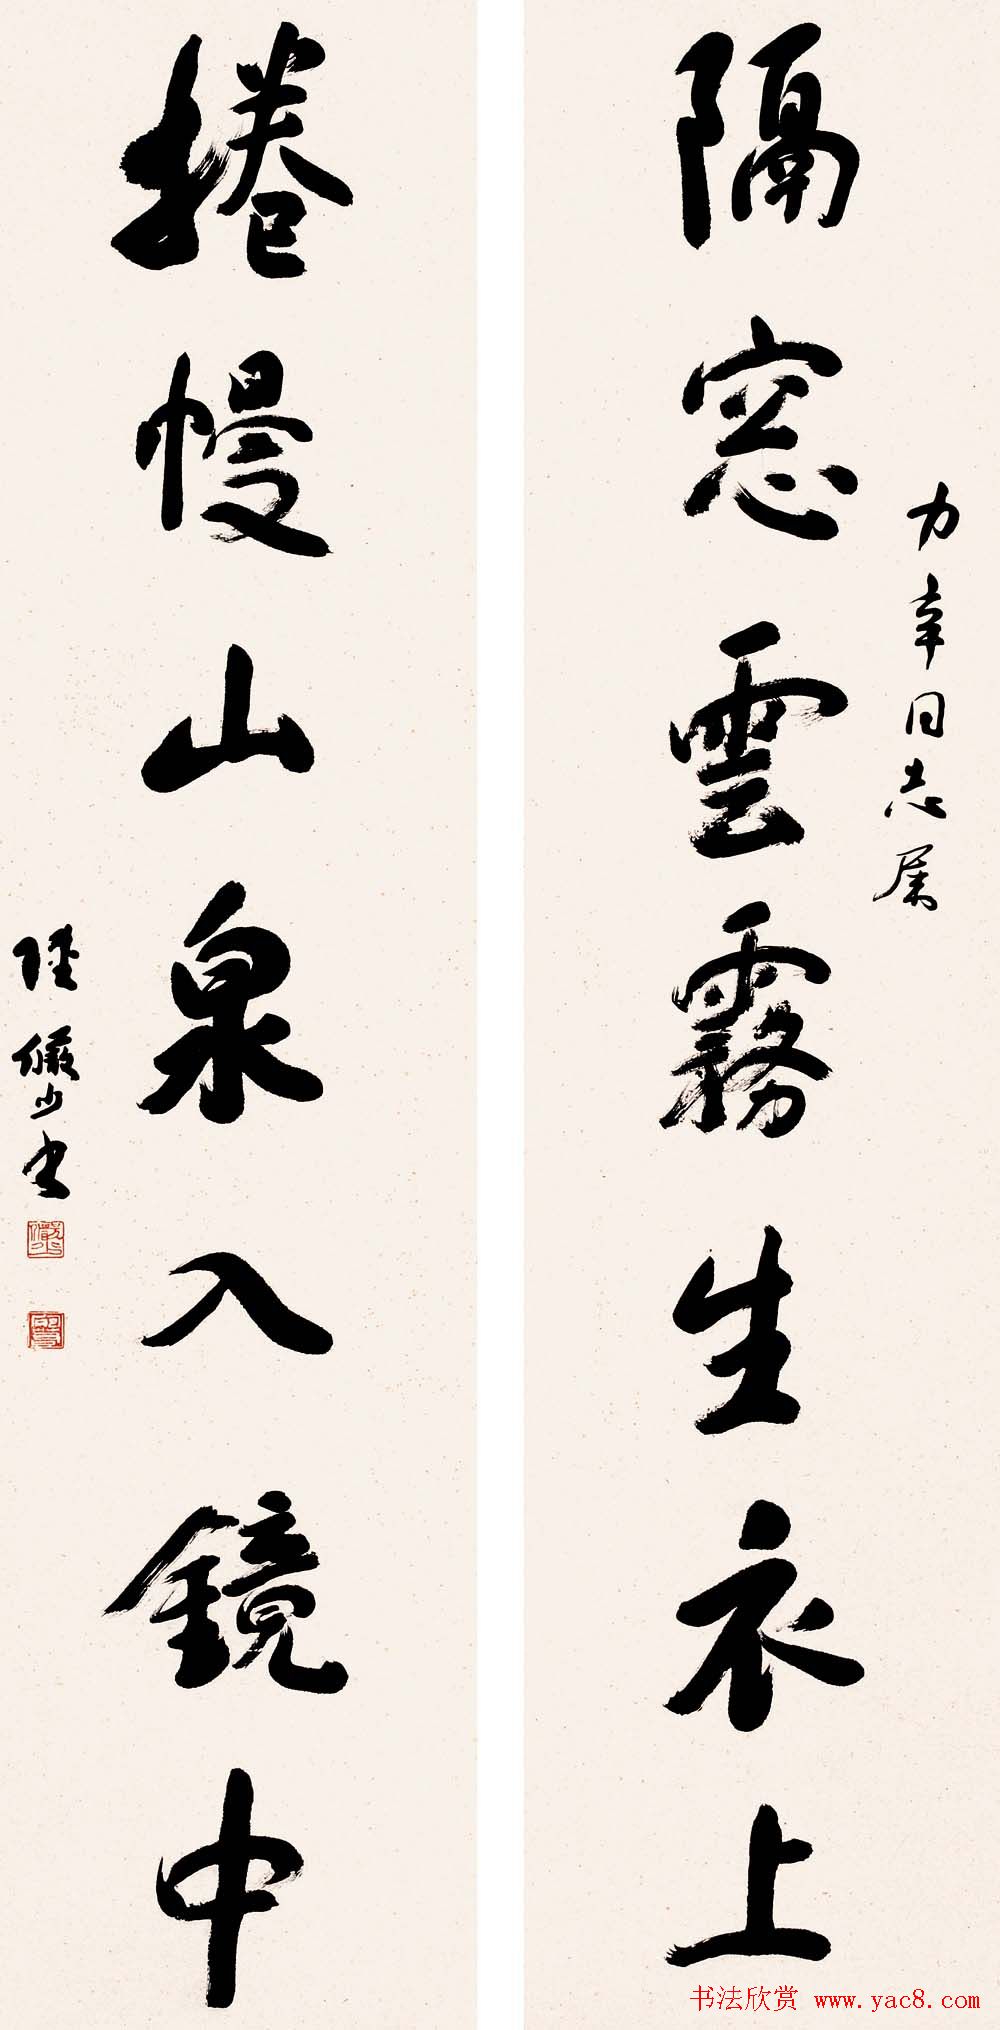 隔窓雲霧生衣上
力辛同志属
捲幔山泉入鏡中
陸儼少书
书法欣赏 www.yac8.com